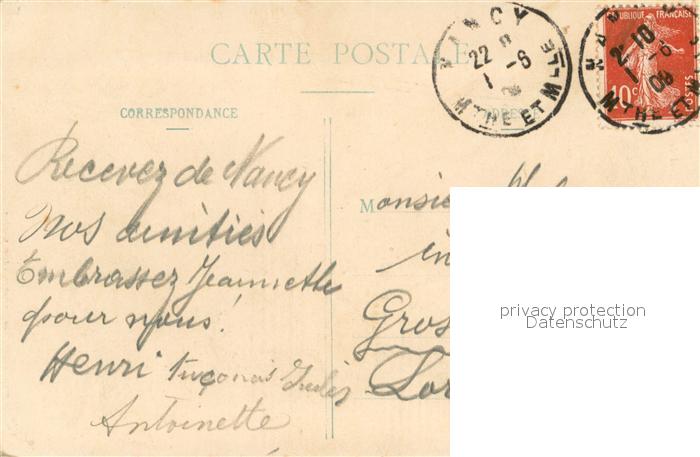 CARTE POSTALE
NANCY
22
1-6
MTHE ET MLLE
REPUBLIQUE FRANÇAISE
10c
POSTES
2-10
1-6
08
MTHE ET M
CORRESPONDANCE
Recevez de Nancy
Nos amitiés
Embrassez Jeannette
pour nous!
Henri
Antoinette
Monsie
in
Gros
Lor
privacy protection
Datenschutz